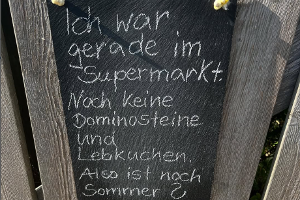 Ich war
gerade im
Supermarkt.
Noch keine
Dominosteine
und
Lebkuchen.
Also ist noch
Sommer